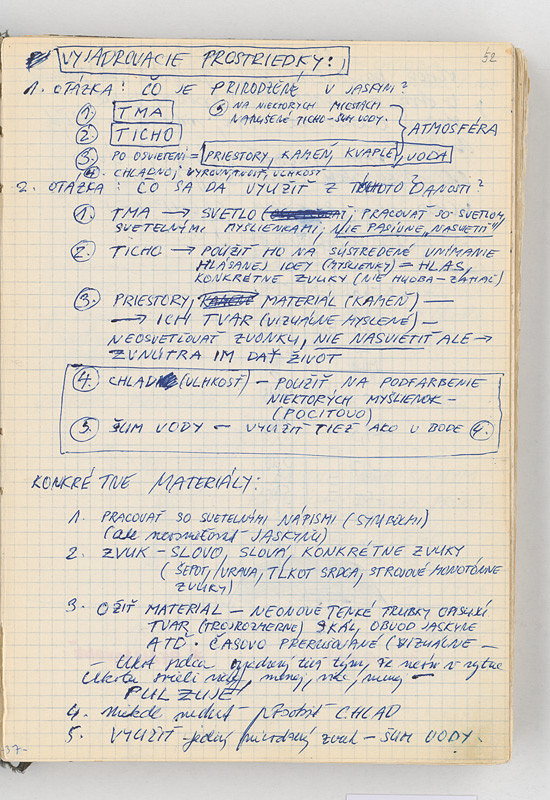 52
VYJADROVACIE PROSTRIEDKY:
1. OTÁZKA: ČO JE PRIRODZENÉ V JASKYNI?
1. TMA
5. NA NIEKTORÝCH MIESTACH
NARUŠENÉ TICHO - ŠUM VODY.
2. TICHO
ATMOSFÉRA
3. PO OSVIETENÍ = PRIESTORY, KAMEŇ, KVAPLE, VODA
4. CHLADNO, VLHKOSŤ
2. OTÁZKA: ČO SA DÁ VYUŽIŤ Z TOHOTO DANOSTI?
1. TMA → SVETLO, PRACOVAŤ SO SVETLOM,
SVETELNÝMI MYŠLIENKAMI, NIE PASÍVNE „NASVIETIŤ"
2. TICHO → POUŽIŤ HO NA SÚSTREDENÉ VNÍMANIE
HLÁSANEJ IDEY (MYŠLIENKY) = HLAS,
KONKRÉTNE ZVUKY (NIE HUDBA-ZÁHAL)
3. PRIESTORY, MATERIÁL (KAMEŇ) —
→ ICH TVAR (VIZUÁLNE MYSLENÉ) —
NEOSVETLOVAŤ ZVONKU, NIE NASVIETIŤ ALE →
ZVNÚTRA IM DAŤ ŽIVOT
4. CHLAD (VLHKOSŤ) — POUŽIŤ NA PODFARBENIE
NIEKTORÝCH MYŠLIENOK —
(POCITOVO)
5. ŠUM VODY — VYUŽIŤ TIEŽ AKO V BODE 4.
KONKRÉTNE MATERIÁLY:
1. PRACOVAŤ SO SVETELNÝMI NÁPISMI (SYMBOLMI)
(ale neosvetľovať JASKYŇU)
2. ZVUK - SLOVO, SLOVÁ, KONKRÉTNE ZVUKY
(ŠEPOT, VRAVA, TLKOT SRDCA, STROJOVÉ MONOTÓNNE
ZVUKY)
3. OŽIŤ MATERIÁL — NEONOVÉ TENKÉ TRUBKY OPISUJÚ
TVAR (TROJROZMERNE) SKÁL, OBVOD JASKYNE
ATĎ. ČASOVO PRERUŠOVANÉ (VIZUÁLNE —
— tlkot srdca tým, že neón v rytme
tlkotu svieti viac, menej, viac, menej —
PULZUJE)
4. Niekde nechať pôsobiť CHLAD
5. VYUŽIŤ jediný prirodzený zvuk — ŠUM VODY.
-37-